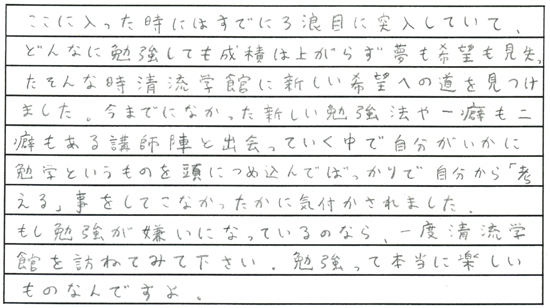 ここに入った時にはすでに3浪目に突入していて、
どんなに勉強しても成積は上がらず夢も希望も見失っ
たそんな時清流学館に新しい希望への道を見つけ
ました。今までになかった新しい勉強法や一癖も二
癖もある講師陣と出会っていく中で自分がいかに
勉学というものを頭につめ込んでばっかりで自分から「考
える」事をしてこなかったかに気付かされました。
もし勉強が嫌いになっているのなら、一度清流学
館を訪ねてみて下さい。勉強って本当に楽しい
ものなんですよ。